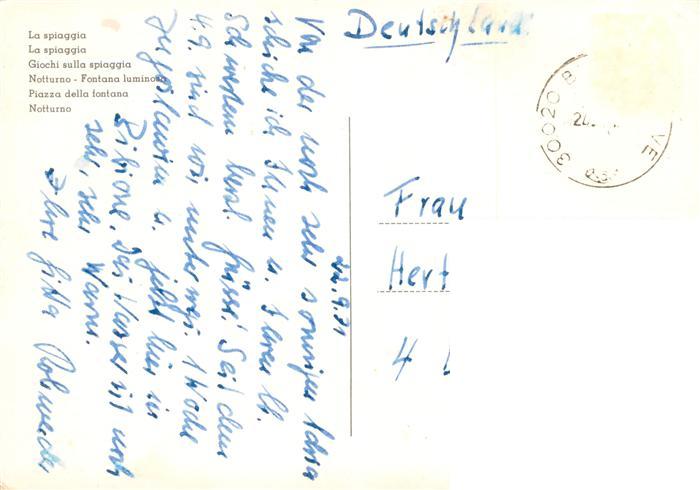 La spiaggia
La spiaggia
Giochi sulla spiaggia
Notturno - Fontana luminosa
Piazza della fontana
Notturno
Deutschland
22.9.71
Von der noch sehr sonnigen Adria
schicke ich Ihnen u. Ihren lb.
Schwestern herzl. Grüsse! Seit dem
4.9. sind wir unterwegs. 1 Woche
Jugoslawien u. jetzt hier in
Bibione. Das Wasser ist noch
sehr, sehr warm.
Ihre Gitta
30020 B VE
Frau
Hert
4